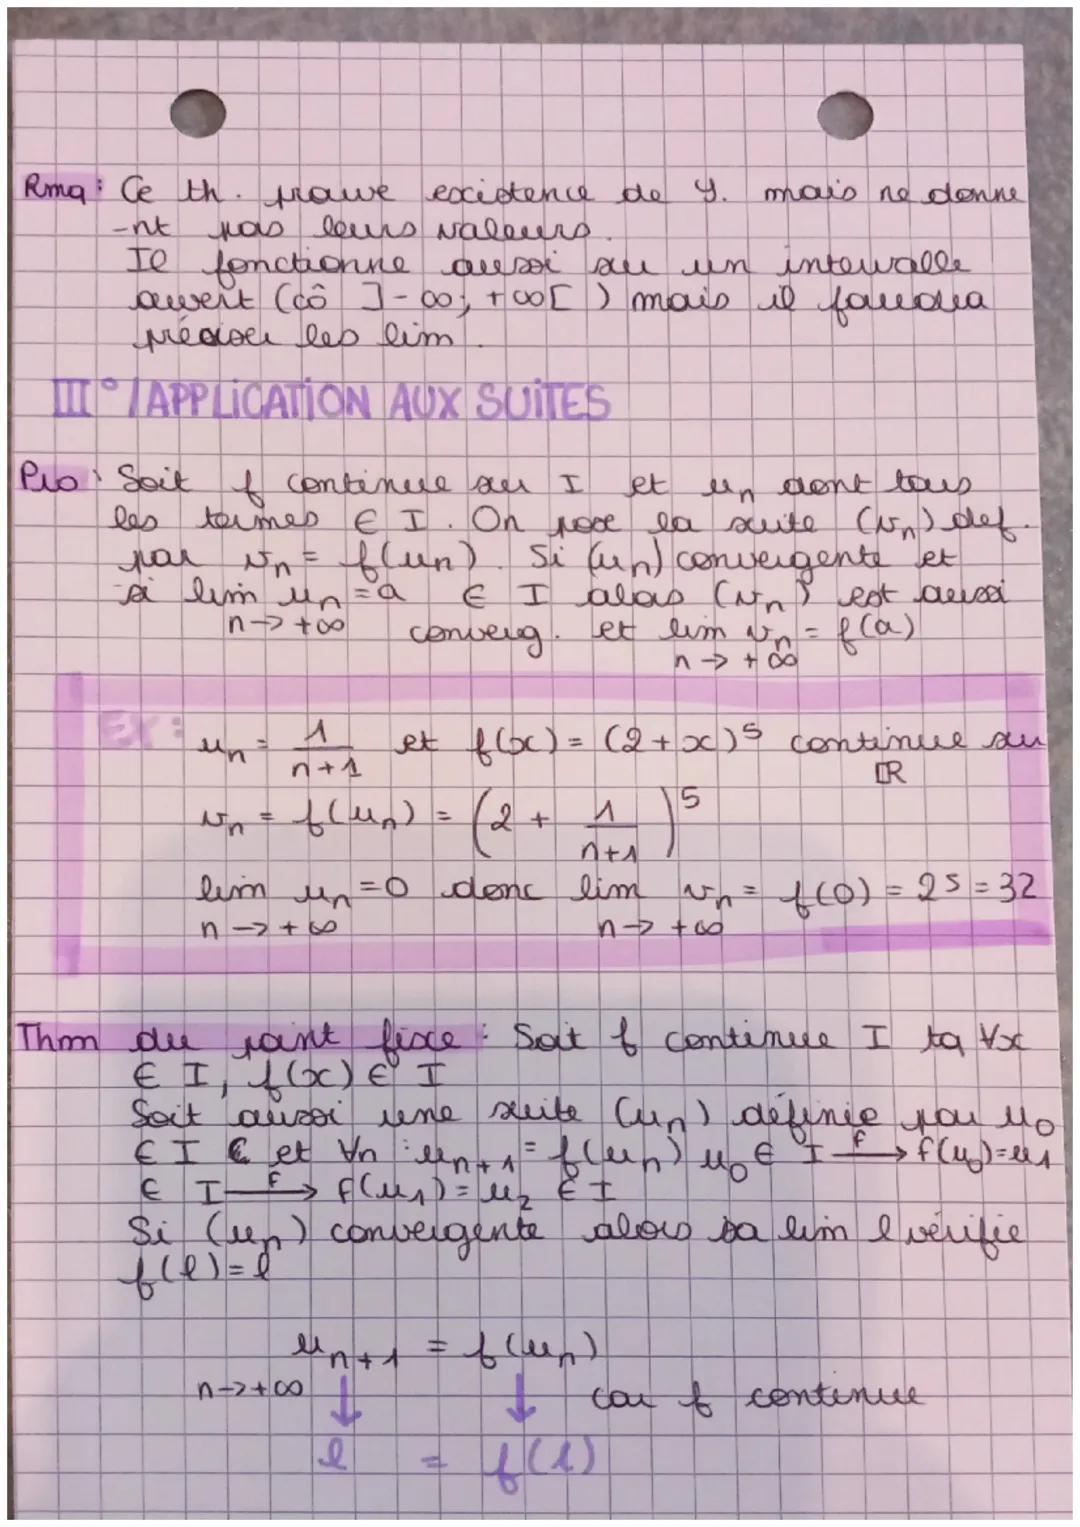 Rmq : Ce th. prouve existence de y. mais ne donne
-nt pas leurs valeurs.
Il fonctionne aussi sur un intervalle
ouvert (cô ]-∞; +∞[ ) mais il faudra
préciser les lim.
III°/APPLICATION AUX SUITES
Pro : Soit f continue sur I et un dont tous
les termes ∈ I. On pose la suite (vn) def.
par vn = f(un). Si (un) convergente et
si lim un = a ∈ I alors (vn) est aussi
n→+∞ converg. et lim vn = f(a)
n→+∞
EX :
un = 1/(n+1) et f(x) = (2+x)^5 continue sur
ℝ
vn = f(un) = (2 + 1/(n+1))^5
lim un = 0 donc lim vn = f(0) = 2^5 = 32
n→+∞ n→+∞
Thm du point fixe : Soit f continue I tq ∀x
∈ I, f(x) ∈ I
Soit aussi une suite (un) définie par u0
∈ I et ∀n : un+1 = f(un) u0 ∈ I —f→ f(u0)=u1
∈ I —f→ f(u1)=u2 ∈ I
Si (un) convergente alors sa lim l vérifie
f(l)=l
un+1 = f(un)
n→+∞ ↓ ↓ car f continue
l = f(l)